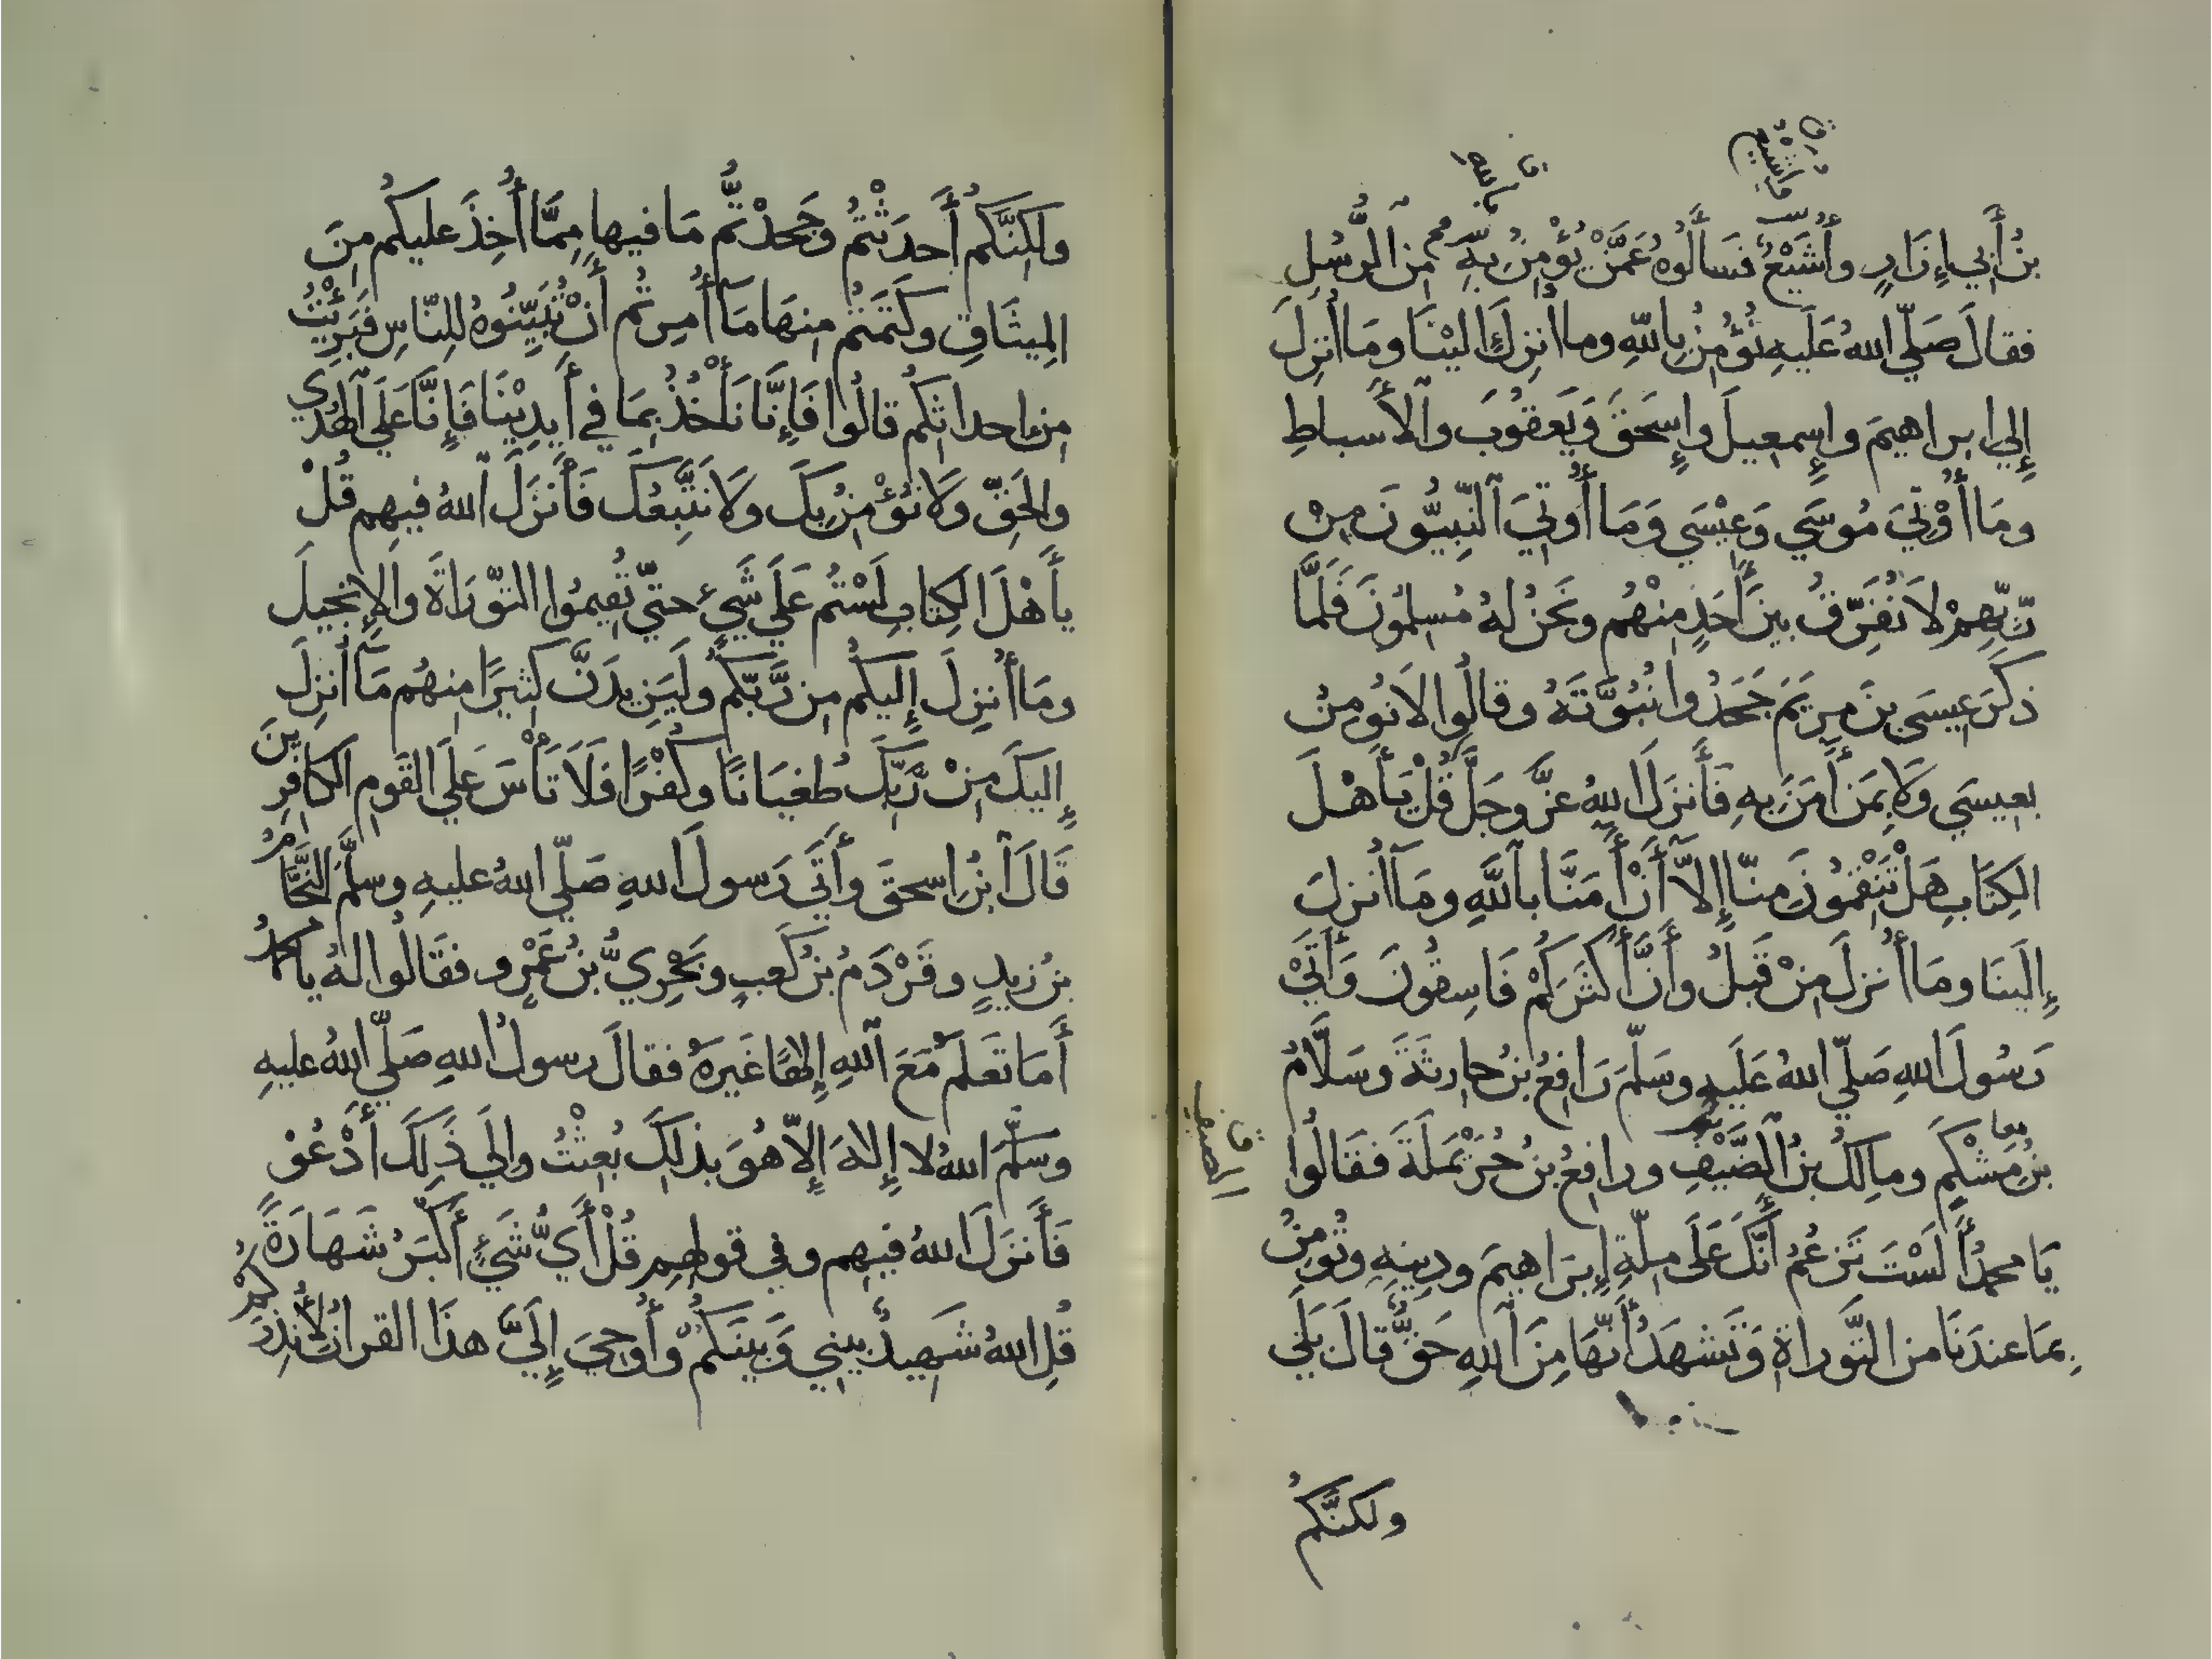 بنُ أَبي إِزَارٍ وأُشَيْعُ فسَأَلُوهُ عَمَّنْ يُؤْمِنُ بِهِ مِنَ الرُّسُلِ
فقالَ صَلّي اللهُ عَلَيهِ نُؤْمِنُ بِاللّهِ وما أُنزِلَ إِلَيْنَا ومَا أُنزِلَ
إِلي ابراهيمَ وإِسمعِيلَ وإِسحَقَ وَيَعقُوبَ والأَسباطِ
ومَا أُوْتِيَ مُوسَي وَعِيْسَي وَمَا أُوتِيَ النَّبِيُّونَ مِنْ
رَّبِّهِمْ لاَ نُفَرِّقُ بينَ أَحَدٍ مِنْهُم ونَحنُ لهُ مُسلِمُونَ فَلَمَّا
ذكَرَ عِيسَي بنَ مريَمَ جَحَدُوا نُبُوَّتَهُ وقالُوا لاَ نُومِنُ
بعِيسَي وَلاَ بِمَن أَمَنَ بِهِ فَأَنزَلَ اللهُ عزَّ وجَلَّ قُلْ يَأَهْلَ
الكِتَابِ هَلْ تَنْقِمُونَ مِنّا إِلاَّ أَنْ أَمَنَّا باللَّهِ ومَا أُنزِلَ
إِلَينَا ومَا أُنزلَ مِنْ قَبلُ وأَنَّ أَكثَرَكُمْ فَاسِقُونَ وَأَتَيْ
رَسُولَ اللهِ صَلّي اللهُ عَلَيهِ وسَلّمَ رَافِعُ بنُ حارِثَةَ وسَلاَّمُ
بنُ مِشْكَمٍ ومالِكُ بنُ الضَّيْفِ ورافِعُ بنُ حُرَيْمَلَةَ فقَالُوا
يَا محمدُ أَلَسْتَ تَزعُمُ أَنَّكَ عَلَى مِلّةِ إِبرَاهيمَ ودِينِهِ وتُومِنُ
بِمَا عندَنَا من التَّوراةِ وَتَشهَدُ أَنّهَا مِنَ اللهِ حَقٌّ قالَ بَلَي
ولكنَّكُم
الضيف
ولكِنَّكُم أَحدَثْتُم وجَحَدْتُّم مَا فيها مِمَّا أُخِذَ عليكُم مِنَ
المِيثَاقِ وكَتَمتُم مِنهَا مَا أُمِرتُم أَنْ تُبَيِّنُوهُ للِنّاسِ فَبَرِئْتُ
مِن احداثِكُم قالُوا فَإِنَّا نَأْخُذُ بِمَا في أَيدِيْنَا فَإِنَّا عَلَي الهُدَي
والحَقّ ولاَ نُؤْمِنُ بِكَ ولاَ نَتَّبِعُكَ فَأَنزَلَ اللهُ فيهِم قُلْ
يأَهْلَ الكِتابِ لَسْتُم عَلَي شَيْءٍ حتّي تُقِيمُوا التّوْرَاةَ والإِنجِيلَ
ومَا أُنزِلَ إِليكُم مِن رَّبّكُم ولَيَزِيدَنَّ كثيرًا مِنهُم مَا أُنزِلَ
إِليكَ مِنْ رَبِّكَ طُغيَانًا وكُفْرًا فَلاَ تَأْسَ عَلَي القَومِ الكافِرِينَ
قَالَ ابنُ اسحقَ وأَتَي رَسولَ اللهِ صَلّي اللهُ عليهِ وسلّمَ النَّحَّامُ
بنُ زيدٍ وقَرْدَمُ بنُ كَعبٍ وبَحْرِيُّ بنُ عَمْرٍو فقَالُوا لهُ يا محمدُ
أَمَا تَعلَمُ مَعَ اللهِ إِلهًا غَيرَهُ فقالَ رسولُ اللهِ صَلّي اللهُ عليهِ
وسَلَّمَ اللهُ لا إِلهَ إِلاّ هُوَ بذلِكَ بُعِثْتُ وإلَي ذَلِكَ أَدْعُوْ
فَأَنزَلَ اللهُ فيهِم وفي قولِهِم قُلْ أَيُّ شَيْءٍ أَكبَرُ شَهَادَةً
قُلِ اللهُ شَهِيدٌ بَيني وَبَينَكُمْ وأُوحِيَ إِلَيَّ هذَا القرانُ لأُنذِرَكُمْ